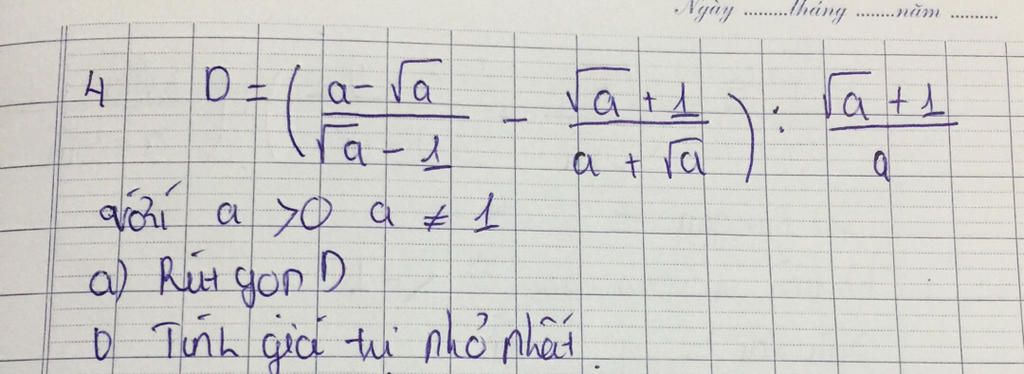 Ngày .........tháng .......năm ..........
4 D = ( (a - √a)/(√a - 1) - (√a + 1)/(a + √a) ) : (√a + 1)/a
với a > 0 a ≠ 1
a) Rút gọn D
b Tính giá trị nhỏ nhất.